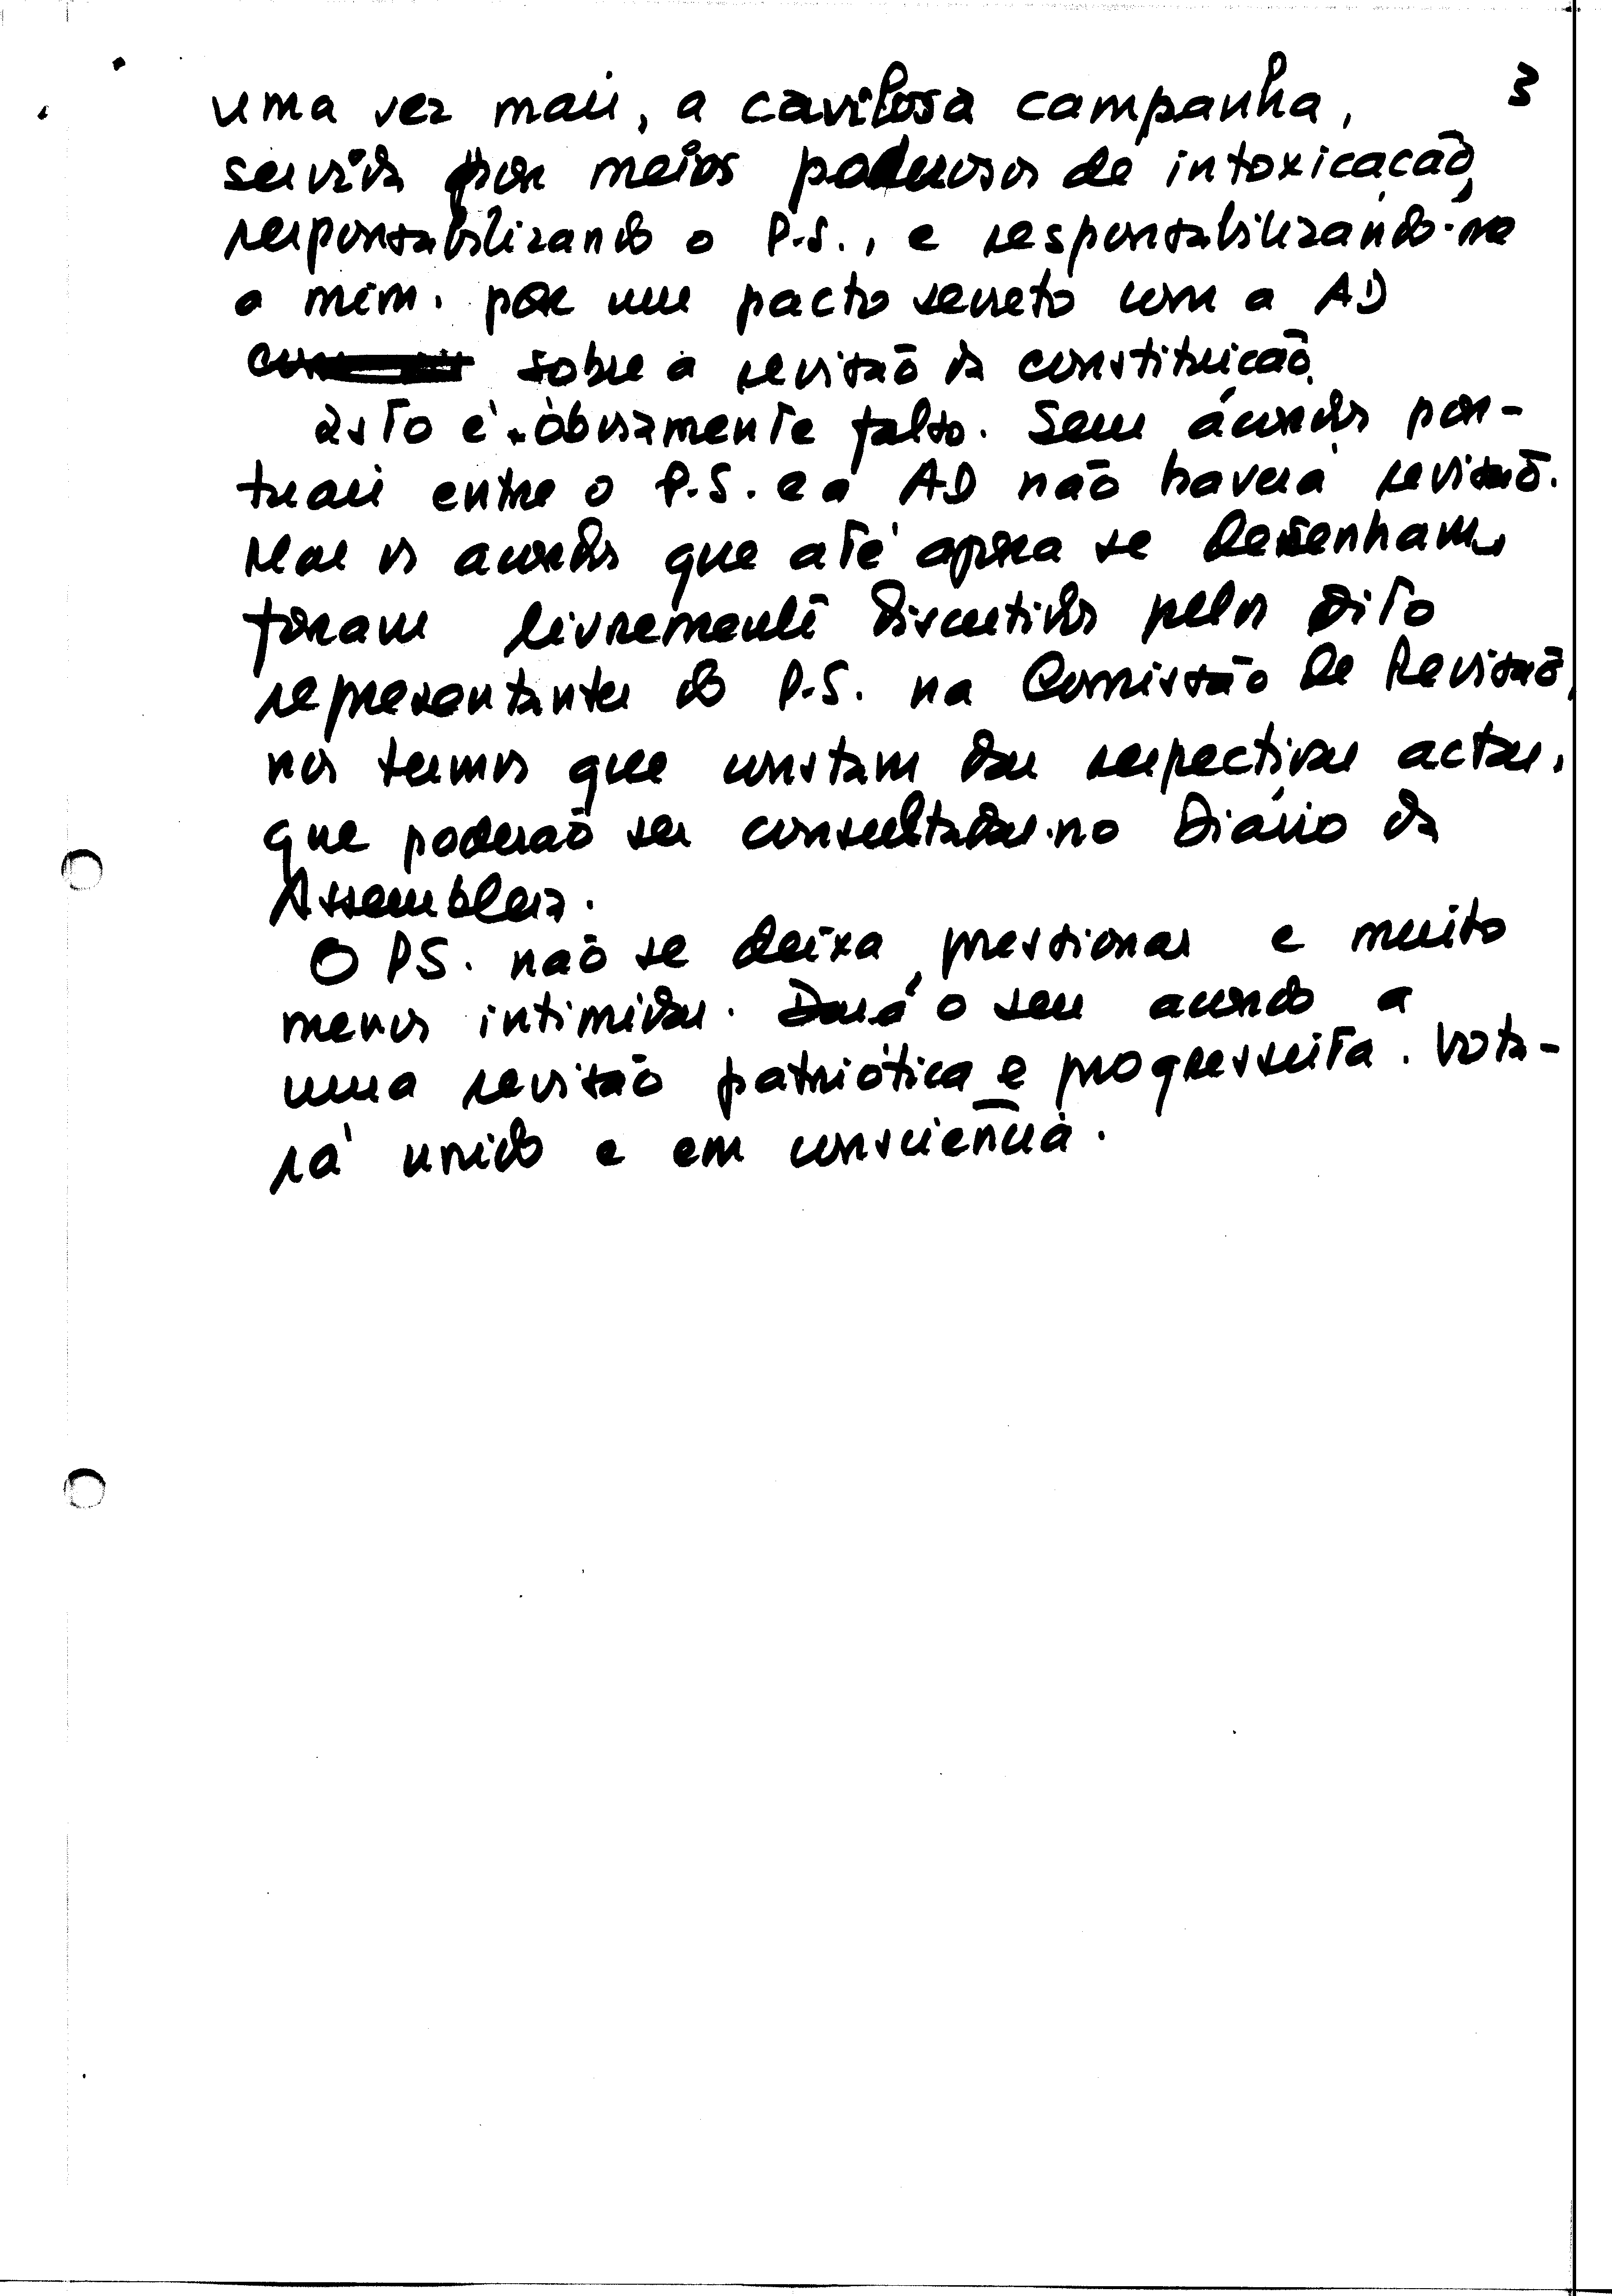 3
uma vez mais, a cavilosa campanha,
servida por meios poderosos de intoxicação,
responsabilizando o P.S., e responsabilizando-me
a mim, por um pacto secreto com a AD
sobre a revisão da constituição.
Isto é obviamente falso. Sem acordos pon-
tuais entre o P.S. e a AD não haverá revisão.
Mas os acordos que até agora se desenham,
foram livremente discutidos pelos oito
representantes do P.S. na Comissão de Revisão,
nos termos que constam das respectivas actas,
que poderão ser consultadas no Diário da
Assembleia.
O PS. não se deixa pressionar e muito
menos intimidar. Dará o seu acordo a
uma revisão patriótica e progressista. Vota-
rá unido e em consciência.